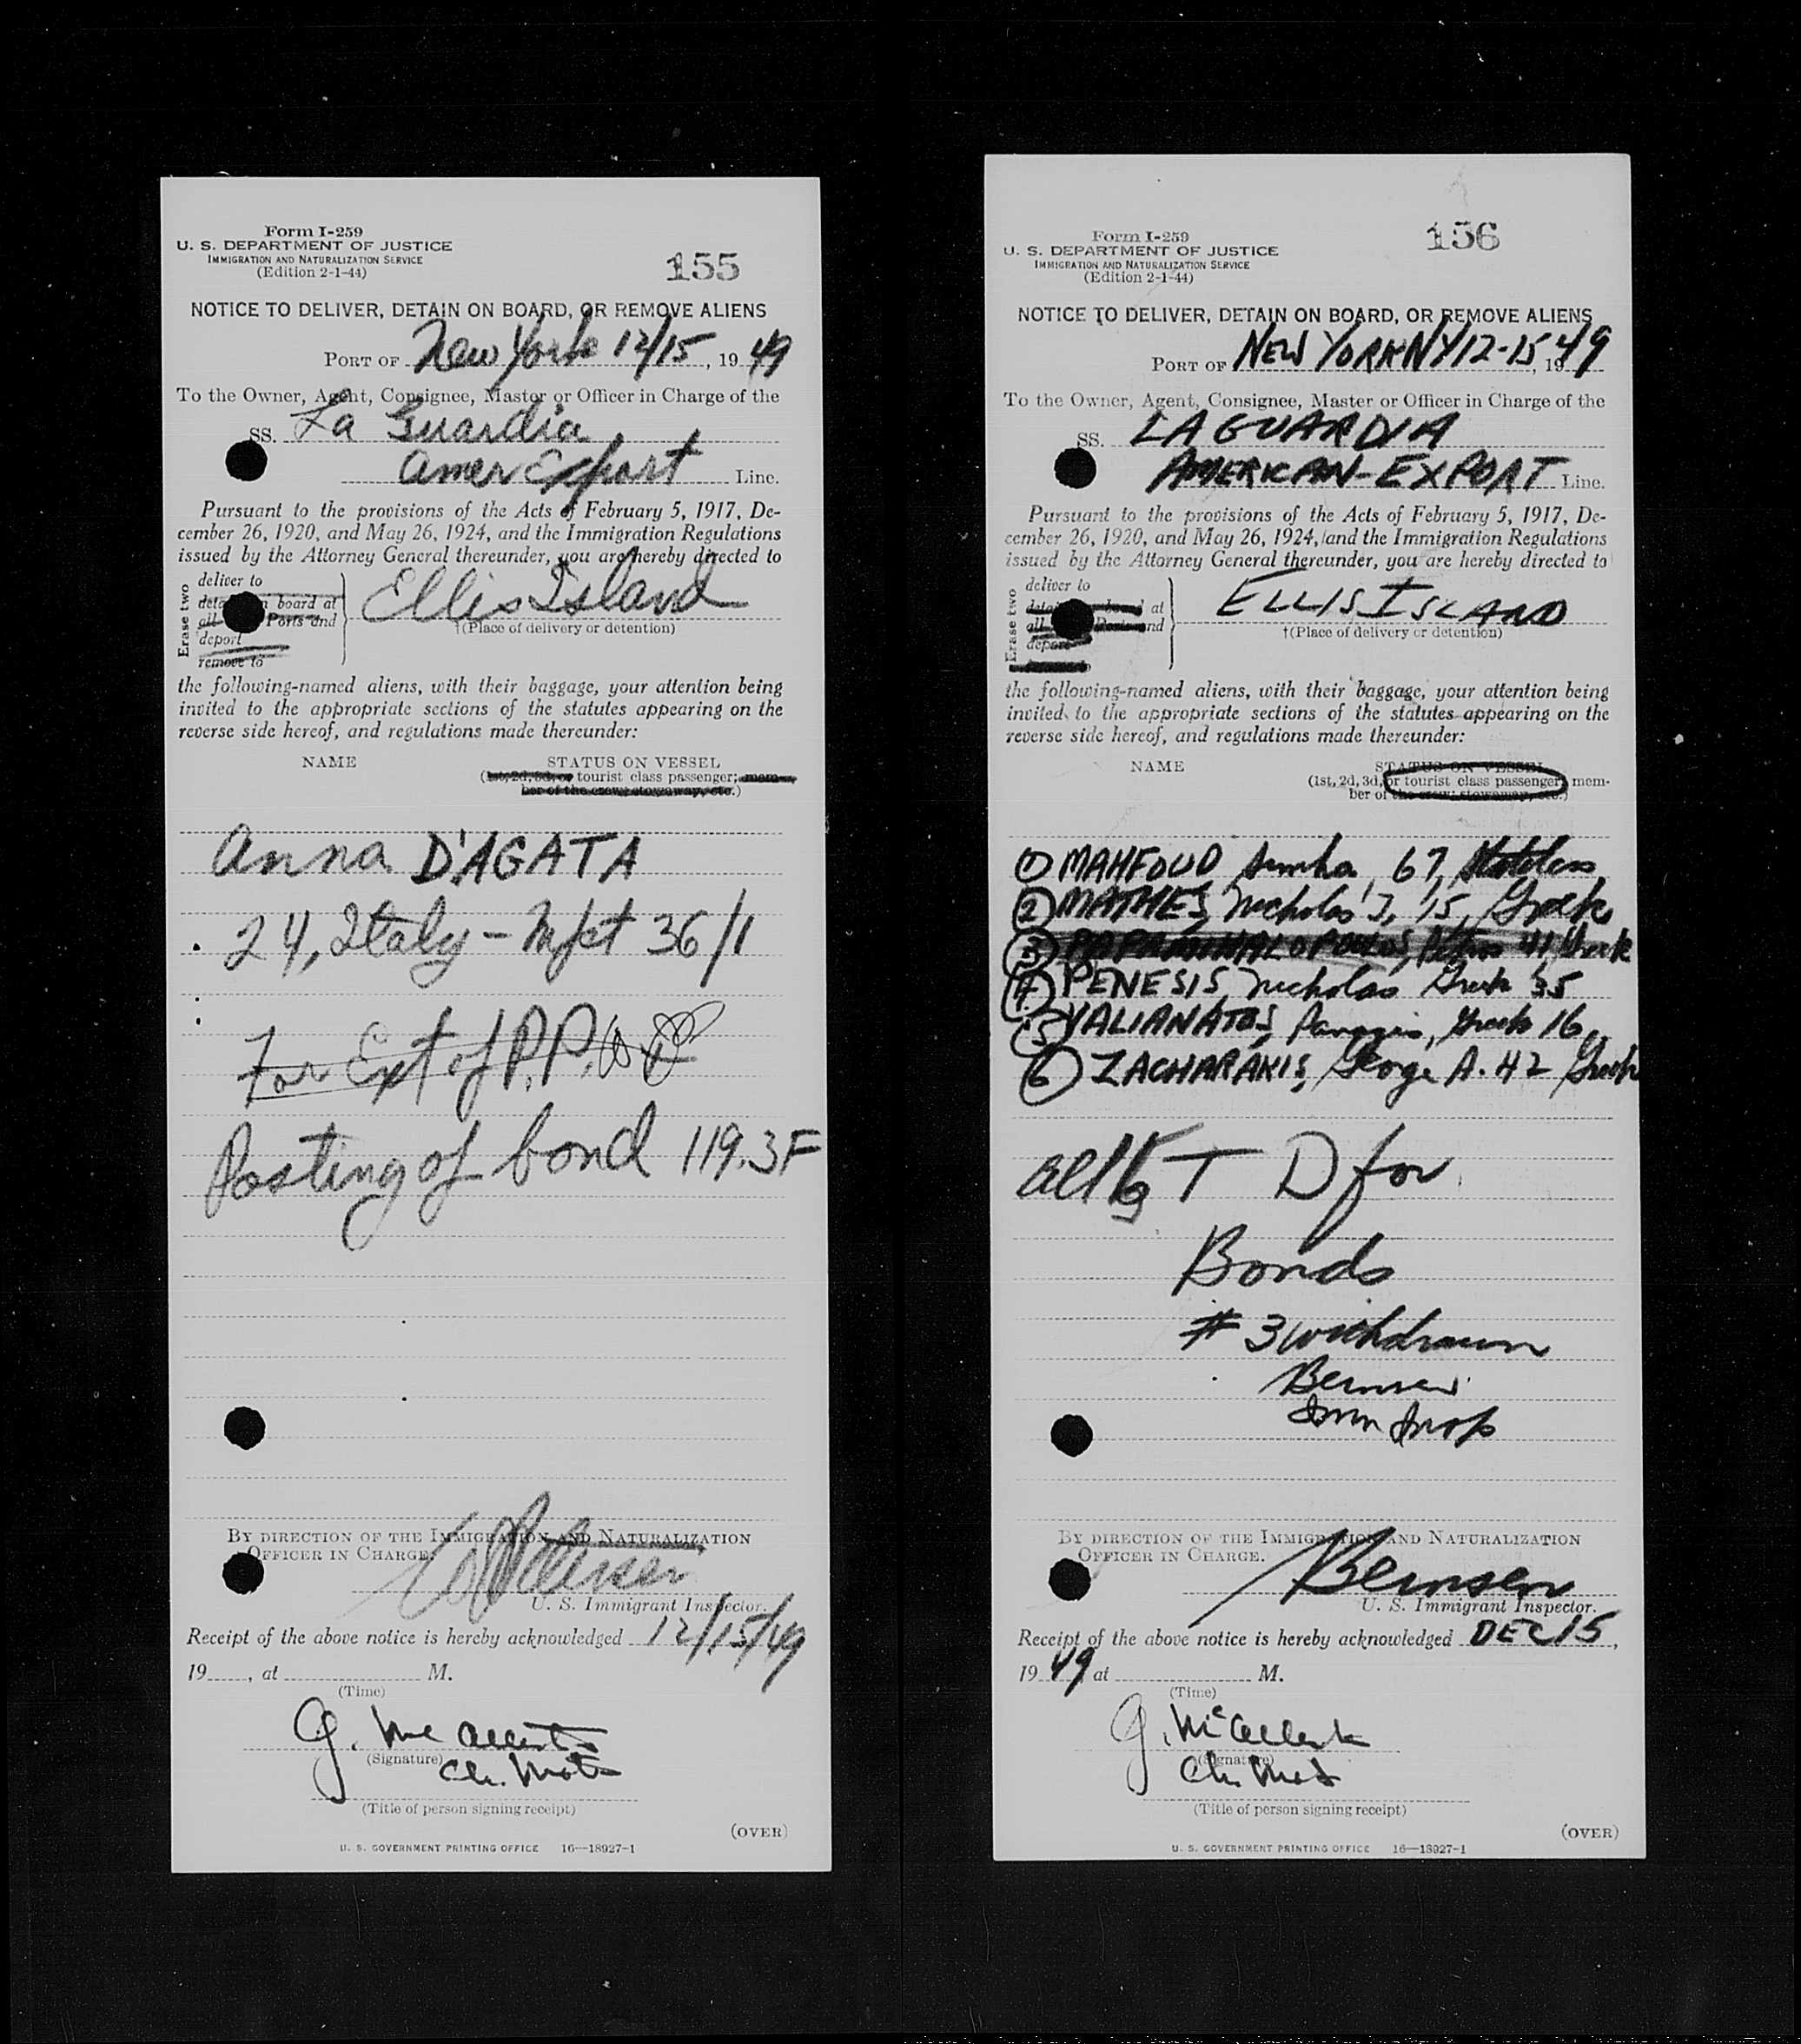 Form I-259
U. S. DEPARTMENT OF JUSTICE
IMMIGRATION AND NATURALIZATION SERVICE
(Edition 2-1-44)
155
NOTICE TO DELIVER, DETAIN ON BOARD, OR REMOVE ALIENS
PORT OF New York 12/15, 19 49
To the Owner, Agent, Consignee, Master or Officer in Charge of the
SS. La Guardia
Amer Export Line.
Pursuant to the provisions of the Acts of February 5, 1917, De-
cember 26, 1920, and May 26, 1924, and the Immigration Regulations
issued by the Attorney General thereunder, you are hereby directed to
Erase two
deliver to
board at
all Ports and
deport
remove to
Ellis Island
†(Place of delivery or detention)
the following-named aliens, with their baggage, your attention being
invited to the appropriate sections of the statutes appearing on the
reverse side hereof, and regulations made thereunder:
NAME STATUS ON VESSEL
(1st, 2d, 3d, or tourist class passenger; mem-
ber of the crew; stowaway, etc.)
Anna D'AGATA
24, Italy - Mfst 36/1
For Ext of P.P.
Posting of bond 119.3F
BY DIRECTION OF THE IMMIGRATION AND NATURALIZATION
OFFICER IN CHARGE.
U. S. Immigrant Inspector.
Receipt of the above notice is hereby acknowledged 12/15/49
19, at M.
(Time)
G.
(Signature)
Ch. Mate
(Title of person signing receipt)
(OVER)
U. S. GOVERNMENT PRINTING OFFICE 16—18927-1
Form I-259
U. S. DEPARTMENT OF JUSTICE
IMMIGRATION AND NATURALIZATION SERVICE
(Edition 2-1-44)
156
NOTICE TO DELIVER, DETAIN ON BOARD, OR REMOVE ALIENS
PORT OF NEW YORK NY 12-15, 19 49
To the Owner, Agent, Consignee, Master or Officer in Charge of the
SS. LAGUARDIA
AMERICAN-EXPORT Line.
Pursuant to the provisions of the Acts of February 5, 1917, De-
cember 26, 1920, and May 26, 1924, and the Immigration Regulations
issued by the Attorney General thereunder, you are hereby directed to
Erase two
deliver to
at
all Ports and
deport
ELLIS ISLAND
†(Place of delivery or detention)
the following-named aliens, with their baggage, your attention being
invited to the appropriate sections of the statutes appearing on the
reverse side hereof, and regulations made thereunder:
NAME STATUS ON VESSEL
(1st, 2d, 3d, or tourist class passenger; mem-
ber of the crew; stowaway, etc.)
① MAHFOUD Simha, 67, Stateless
② MATHES, Nicholas J, 15, Greek
③ PAPAMIHALOPOULOS, 41, Greek
④ PENESIS Nicholas Greek 35
⑤ VALIANATOS, Panagis, Greek 16
⑥ ZACHARAKIS, George A. 42 Greek
all T D for
Bonds
# 3 withdrawn
Bernsen
Imm Insp
BY DIRECTION OF THE IMMIGRATION AND NATURALIZATION
OFFICER IN CHARGE.
Bernsen
U. S. Immigrant Inspector.
Receipt of the above notice is hereby acknowledged DEC 15,
19 49 at M.
(Time)
G.
(Signature)
Ch. Mate
(Title of person signing receipt)
(OVER)
U. S. GOVERNMENT PRINTING OFFICE 16—18927-1